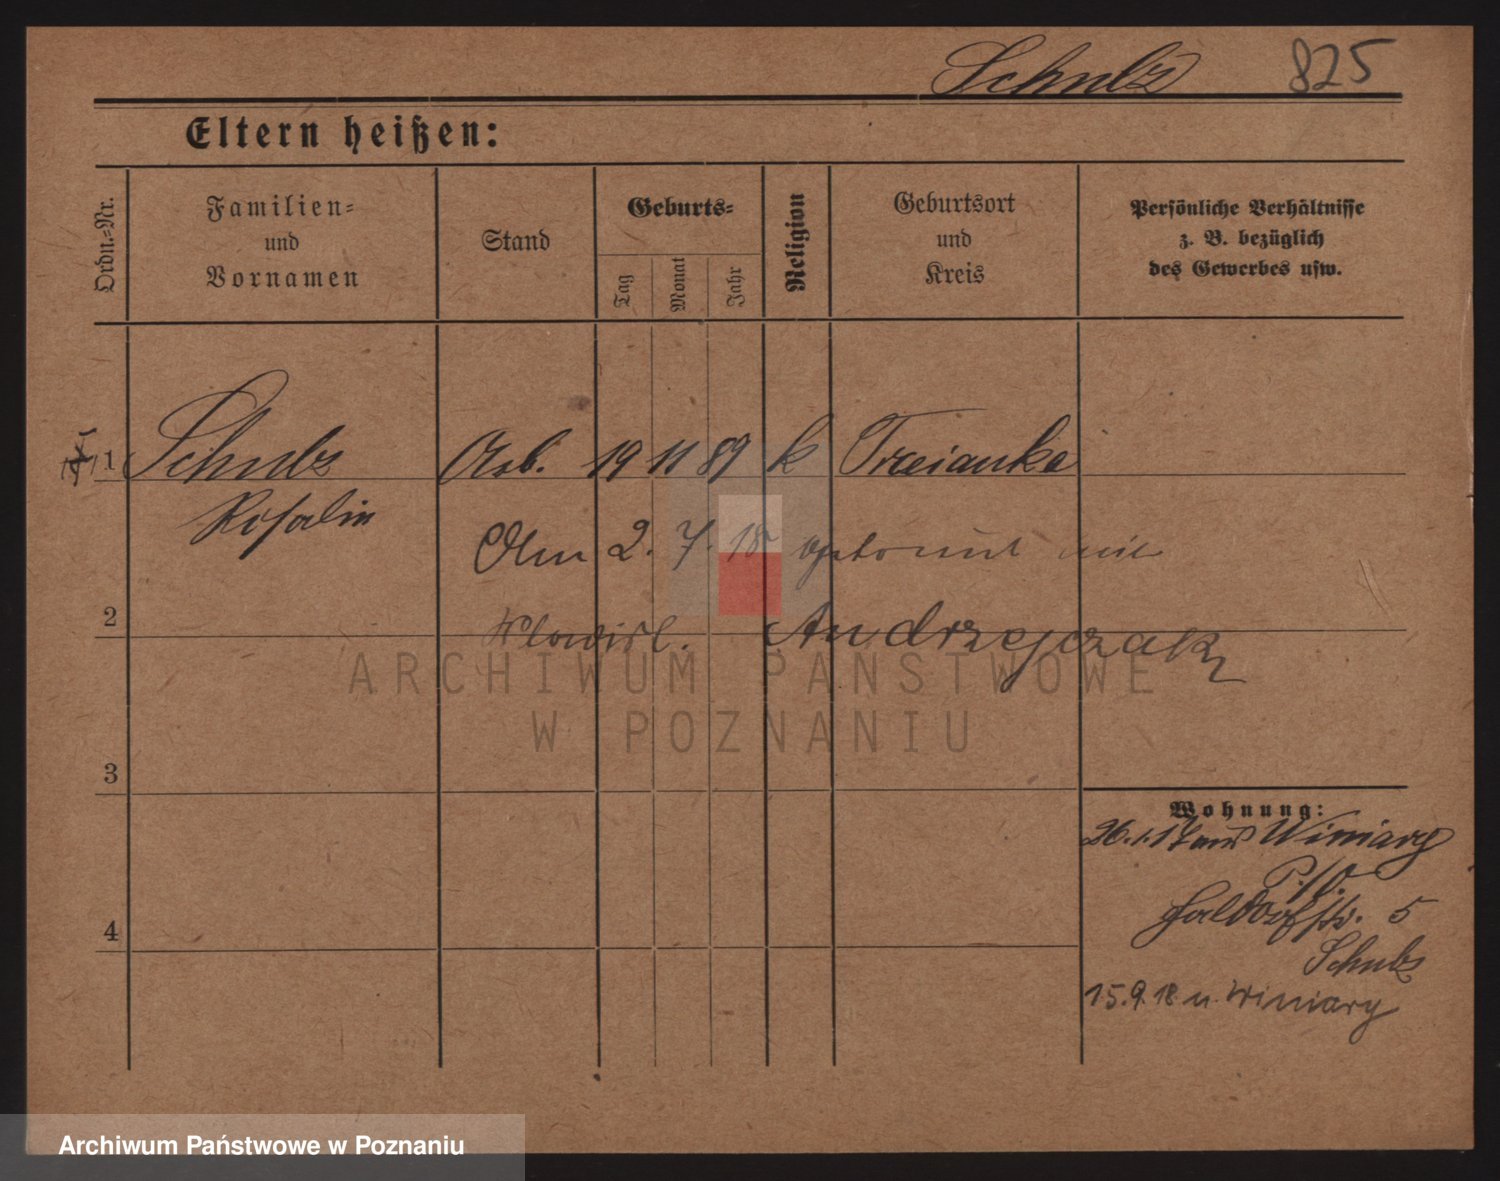 Schulz 825
Eltern heißen:
Ordn.-Nr.
Familien- und Vornamen
Stand
Geburts-
Tag
Monat
Jahr
Religion
Geburtsort und Kreis
Persönliche Verhältnisse z. B. bezüglich des Gewerbes usw.
1 Schulz Arb. 19 11 89 k Trzcianka
Rosalin
Am 2. 7. 18 getraut mit
2 Wladisl. Andrzejczak
3
Wohnung:
26.1.17 aus Winiary
P./O.
4
5
Schulz
15.9.18 n. Winiary
ARCHIWUM PAŃSTWOWE
W POZNANIU
Archiwum Państwowe w Poznaniu